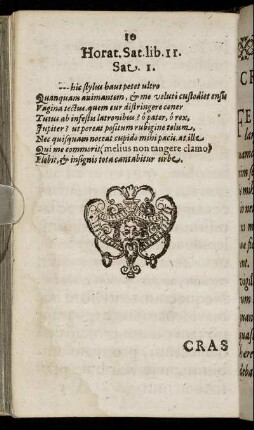 10
Horat. Sat. lib. 11.
Sat. 1.
--- hic stylus haut petet ultro
Quanquam animantem, & me veluti custodiet ensis
Vagina tectus. quem cur distringere coner
Tutus ab infestis latronibus? ô pater, ô rex,
Jupiter? ut pereat positum rubigine telum,
Nec quisquam noceat cupido mihi pacis. at ille
Qui me commorit (melius non tangere clamo)
Flebit, & insignis tota cantabitur urbe.
CRAS